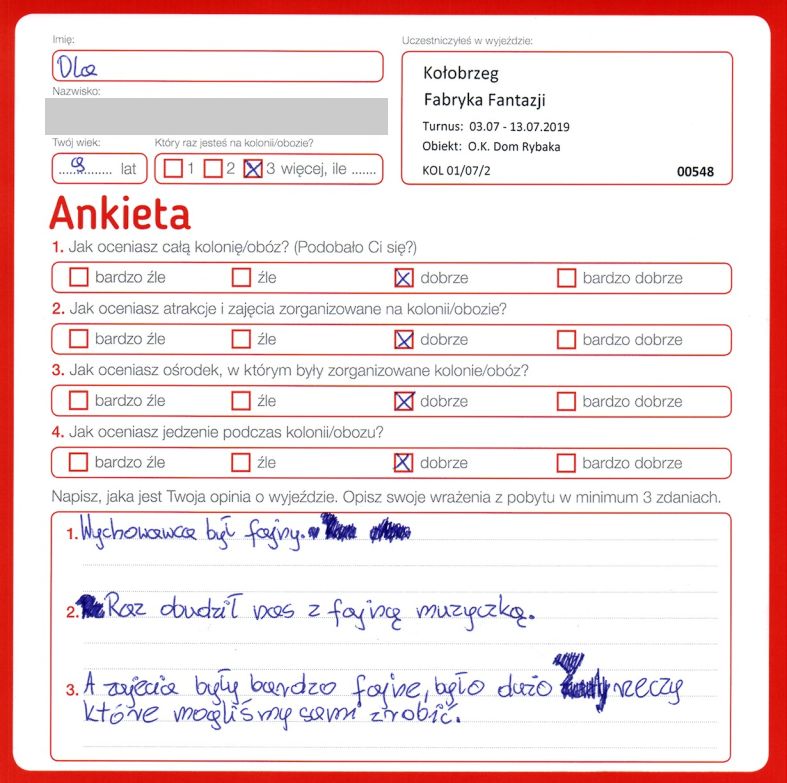 Imię:
Ola
Nazwisko:
Twój wiek:
9 lat
Który raz jesteś na kolonii/obozie?
1 2 3 więcej, ile .......
Uczestniczyłeś w wyjeździe:
Kołobrzeg
Fabryka Fantazji
Turnus: 03.07 - 13.07.2019
Obiekt: O.K. Dom Rybaka
KOL 01/07/2 00548
Ankieta
1. Jak oceniasz całą kolonię/obóz? (Podobało Ci się?)
bardzo źle źle dobrze bardzo dobrze
2. Jak oceniasz atrakcje i zajęcia zorganizowane na kolonii/obozie?
bardzo źle źle dobrze bardzo dobrze
3. Jak oceniasz ośrodek, w którym były zorganizowane kolonie/obóz?
bardzo źle źle dobrze bardzo dobrze
4. Jak oceniasz jedzenie podczas kolonii/obozu?
bardzo źle źle dobrze bardzo dobrze
Napisz, jaka jest Twoja opinia o wyjeździe. Opisz swoje wrażenia z pobytu w minimum 3 zdaniach.
1. Wychowawca był fajny.
2. Raz obudził nas z fajną muzyczką.
3. A zajęcia były bardzo fajne, było dużo rzeczy
które mogliśmy sami zrobić.